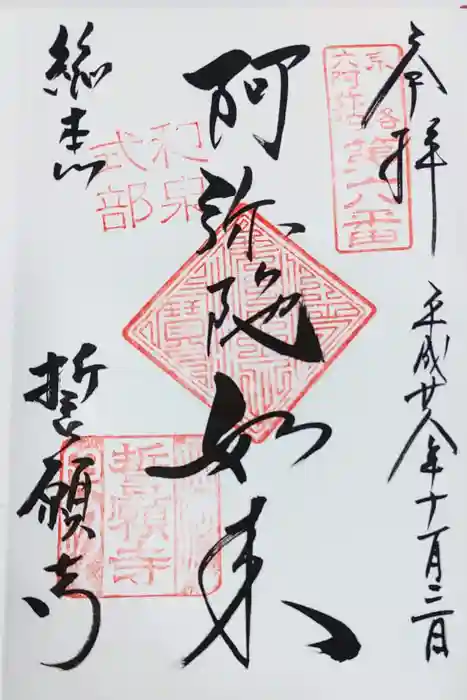 奉拝
平成廿八年十一月二日
京洛
六阿弥陀
第六番
阿弥陀如来
和泉
式部
総本山
誓願寺
誓願寺